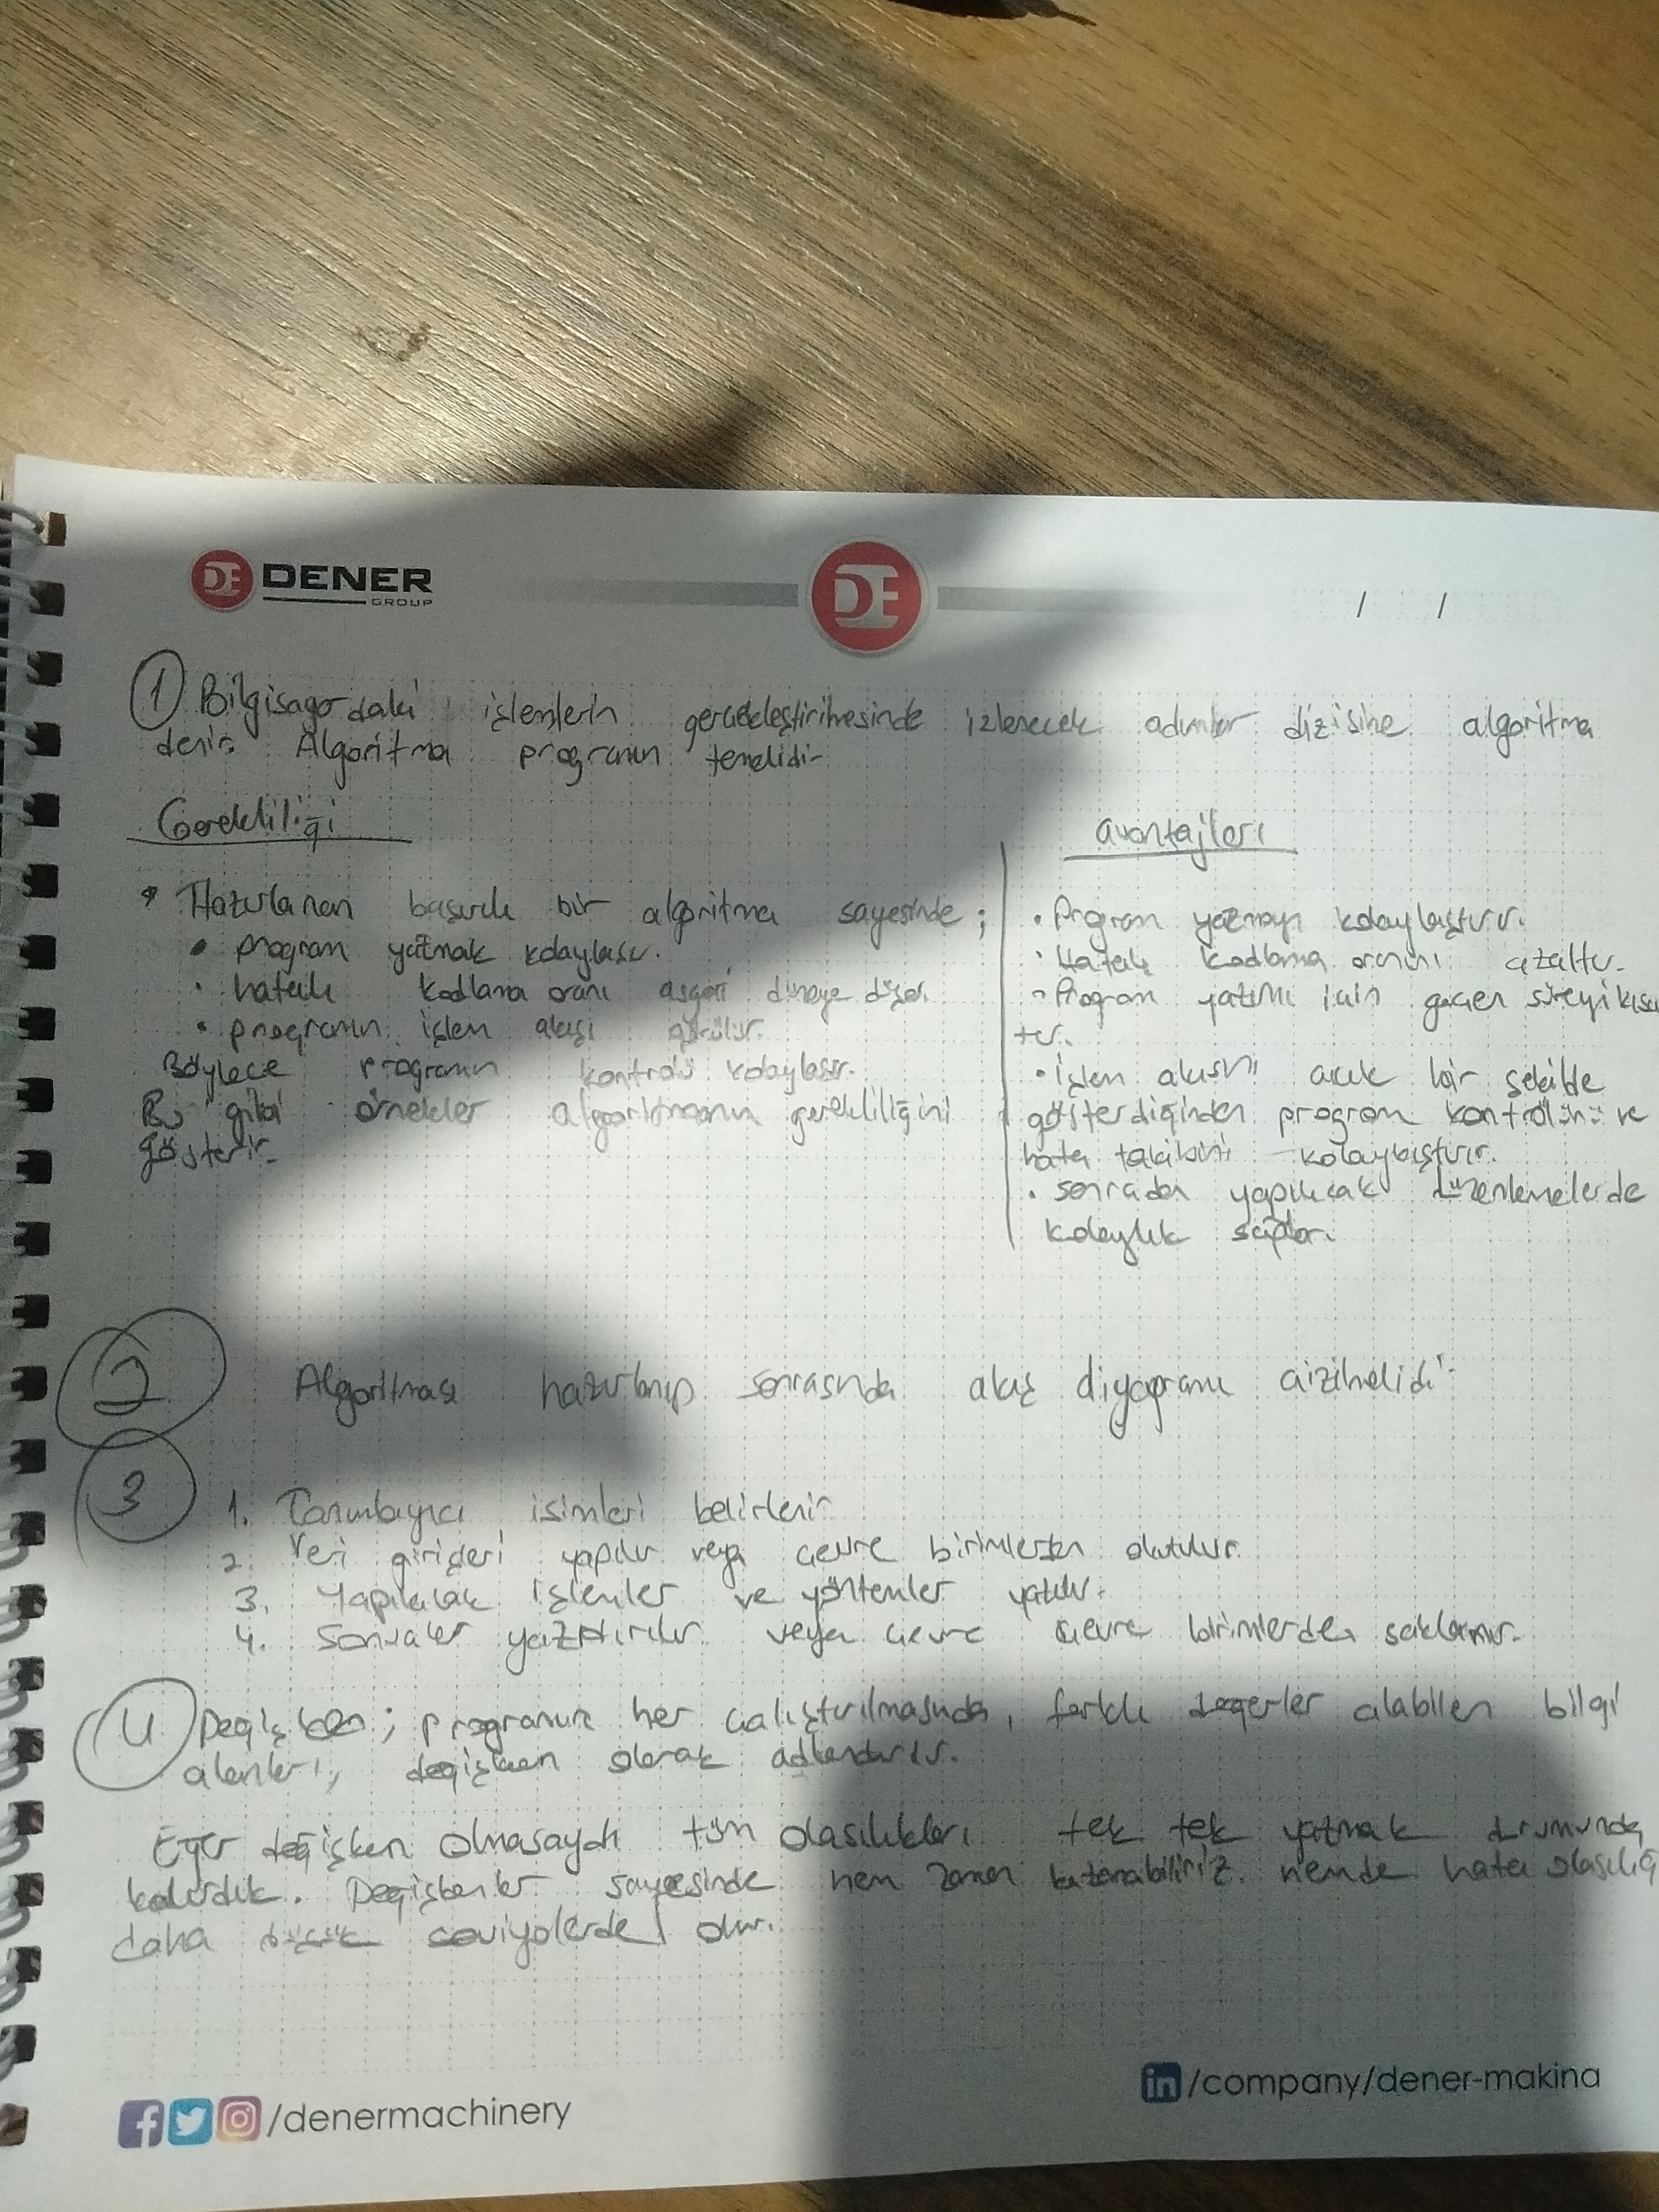 DENER
GROUP
DE
/ /
① Bilgisayardaki işlemlerin gerçekleştirilmesinde izlenecek adımlar dizisine algoritma
denir. Algoritma programın temelidir
Gerekliliği
* Hazırlanan başarılı bir algoritma sayesinde;
• program yazmak kolaylaşır.
• hatalı kodlama oranı asgari düzeye düşer.
• programın işlem akışı görülür.
Böylece programın kontrolü kolaylaşır.
Bu gibi örnekler algoritmanın gerekliliğini
gösterir.
avantajları
• Program yazmayı kolaylaştırır.
• Hatalı kodlama oranını azaltır.
• Program yazımı için geçen süreyi kısa
tır.
• işlem akışını açık bir şekilde
gösterdiğinden program kontrolünü ve
hata takibini kolaylaştırır.
• sonradan yapılacak düzenlemelerde
kolaylık sağlar.
② Algoritması hazırlanıp sonrasında akış diyagramı çizilmelidir
③
1. Tanımlayıcı isimleri belirlenir
2. Veri girişleri yapılır veya çevre birimlerden okutulur.
3. Yapılacak işlemler ve yöntemler yazılır.
4. Sonuçlar yazdırılır veya çevre çevre birimlerde saklanır.
④ Değişken; programın her çalıştırılmasında, farklı değerler alabilen bilgi
alanları, değişken olarak adlandırılır.
Eğer değişken olmasaydı tüm olasılıkları tek tek yazmak durumunda
kalırdık. Değişkenler sayesinde hem zaman kazanabiliriz hemde hata olasılığı
daha düşük seviyelerde olur.
/denermachinery
in /company/dener-makina